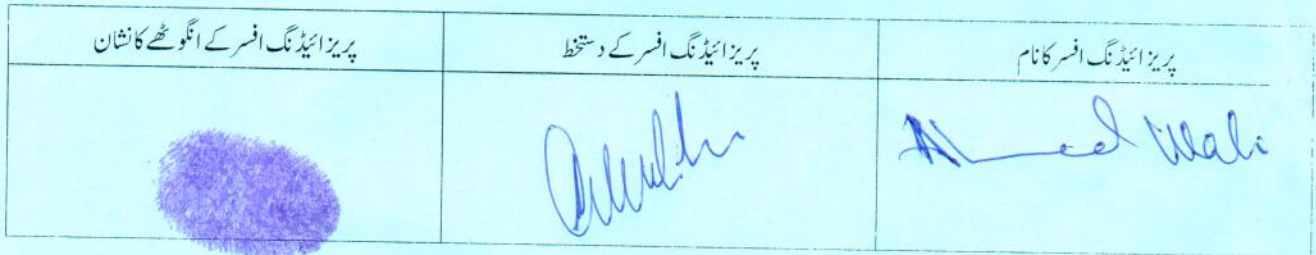 پریزائیڈنگ افسر کا نام
پریزائیڈنگ افسر کے دستخط
پریزائیڈنگ افسر کے انگوٹھے کا نشان
Ahmed Wali